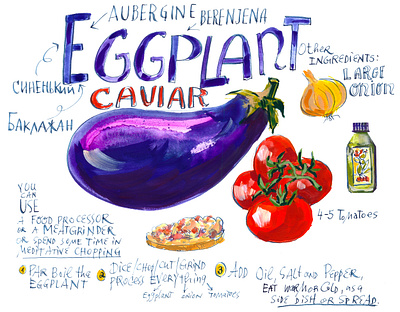 AUBERGINE
BERENJENA
EGGPLANT
CAVIAR
СИНЕНЬКИЙ
БАКЛАЖАН
Other
INGREDIENTS:
LARGE
ONION
4-5 Tomatoes
YOU
CAN
USE
A FOOD PROCESSOR
OR A MEATGRINDER
OR SPEND SOME TIME IN
MEDITATIVE CHOPPING
1 PAR BOIL THE
EGGPLANT
2 DICE/CHOP/CUT/GRIND
PROCESS EVERYTHING
Eggplant onion tomatoes
3 ADD OIL, SALT AND PEPPER,
EAT WARM OR COLD, AS A
SIDE DISH OR SPREAD.